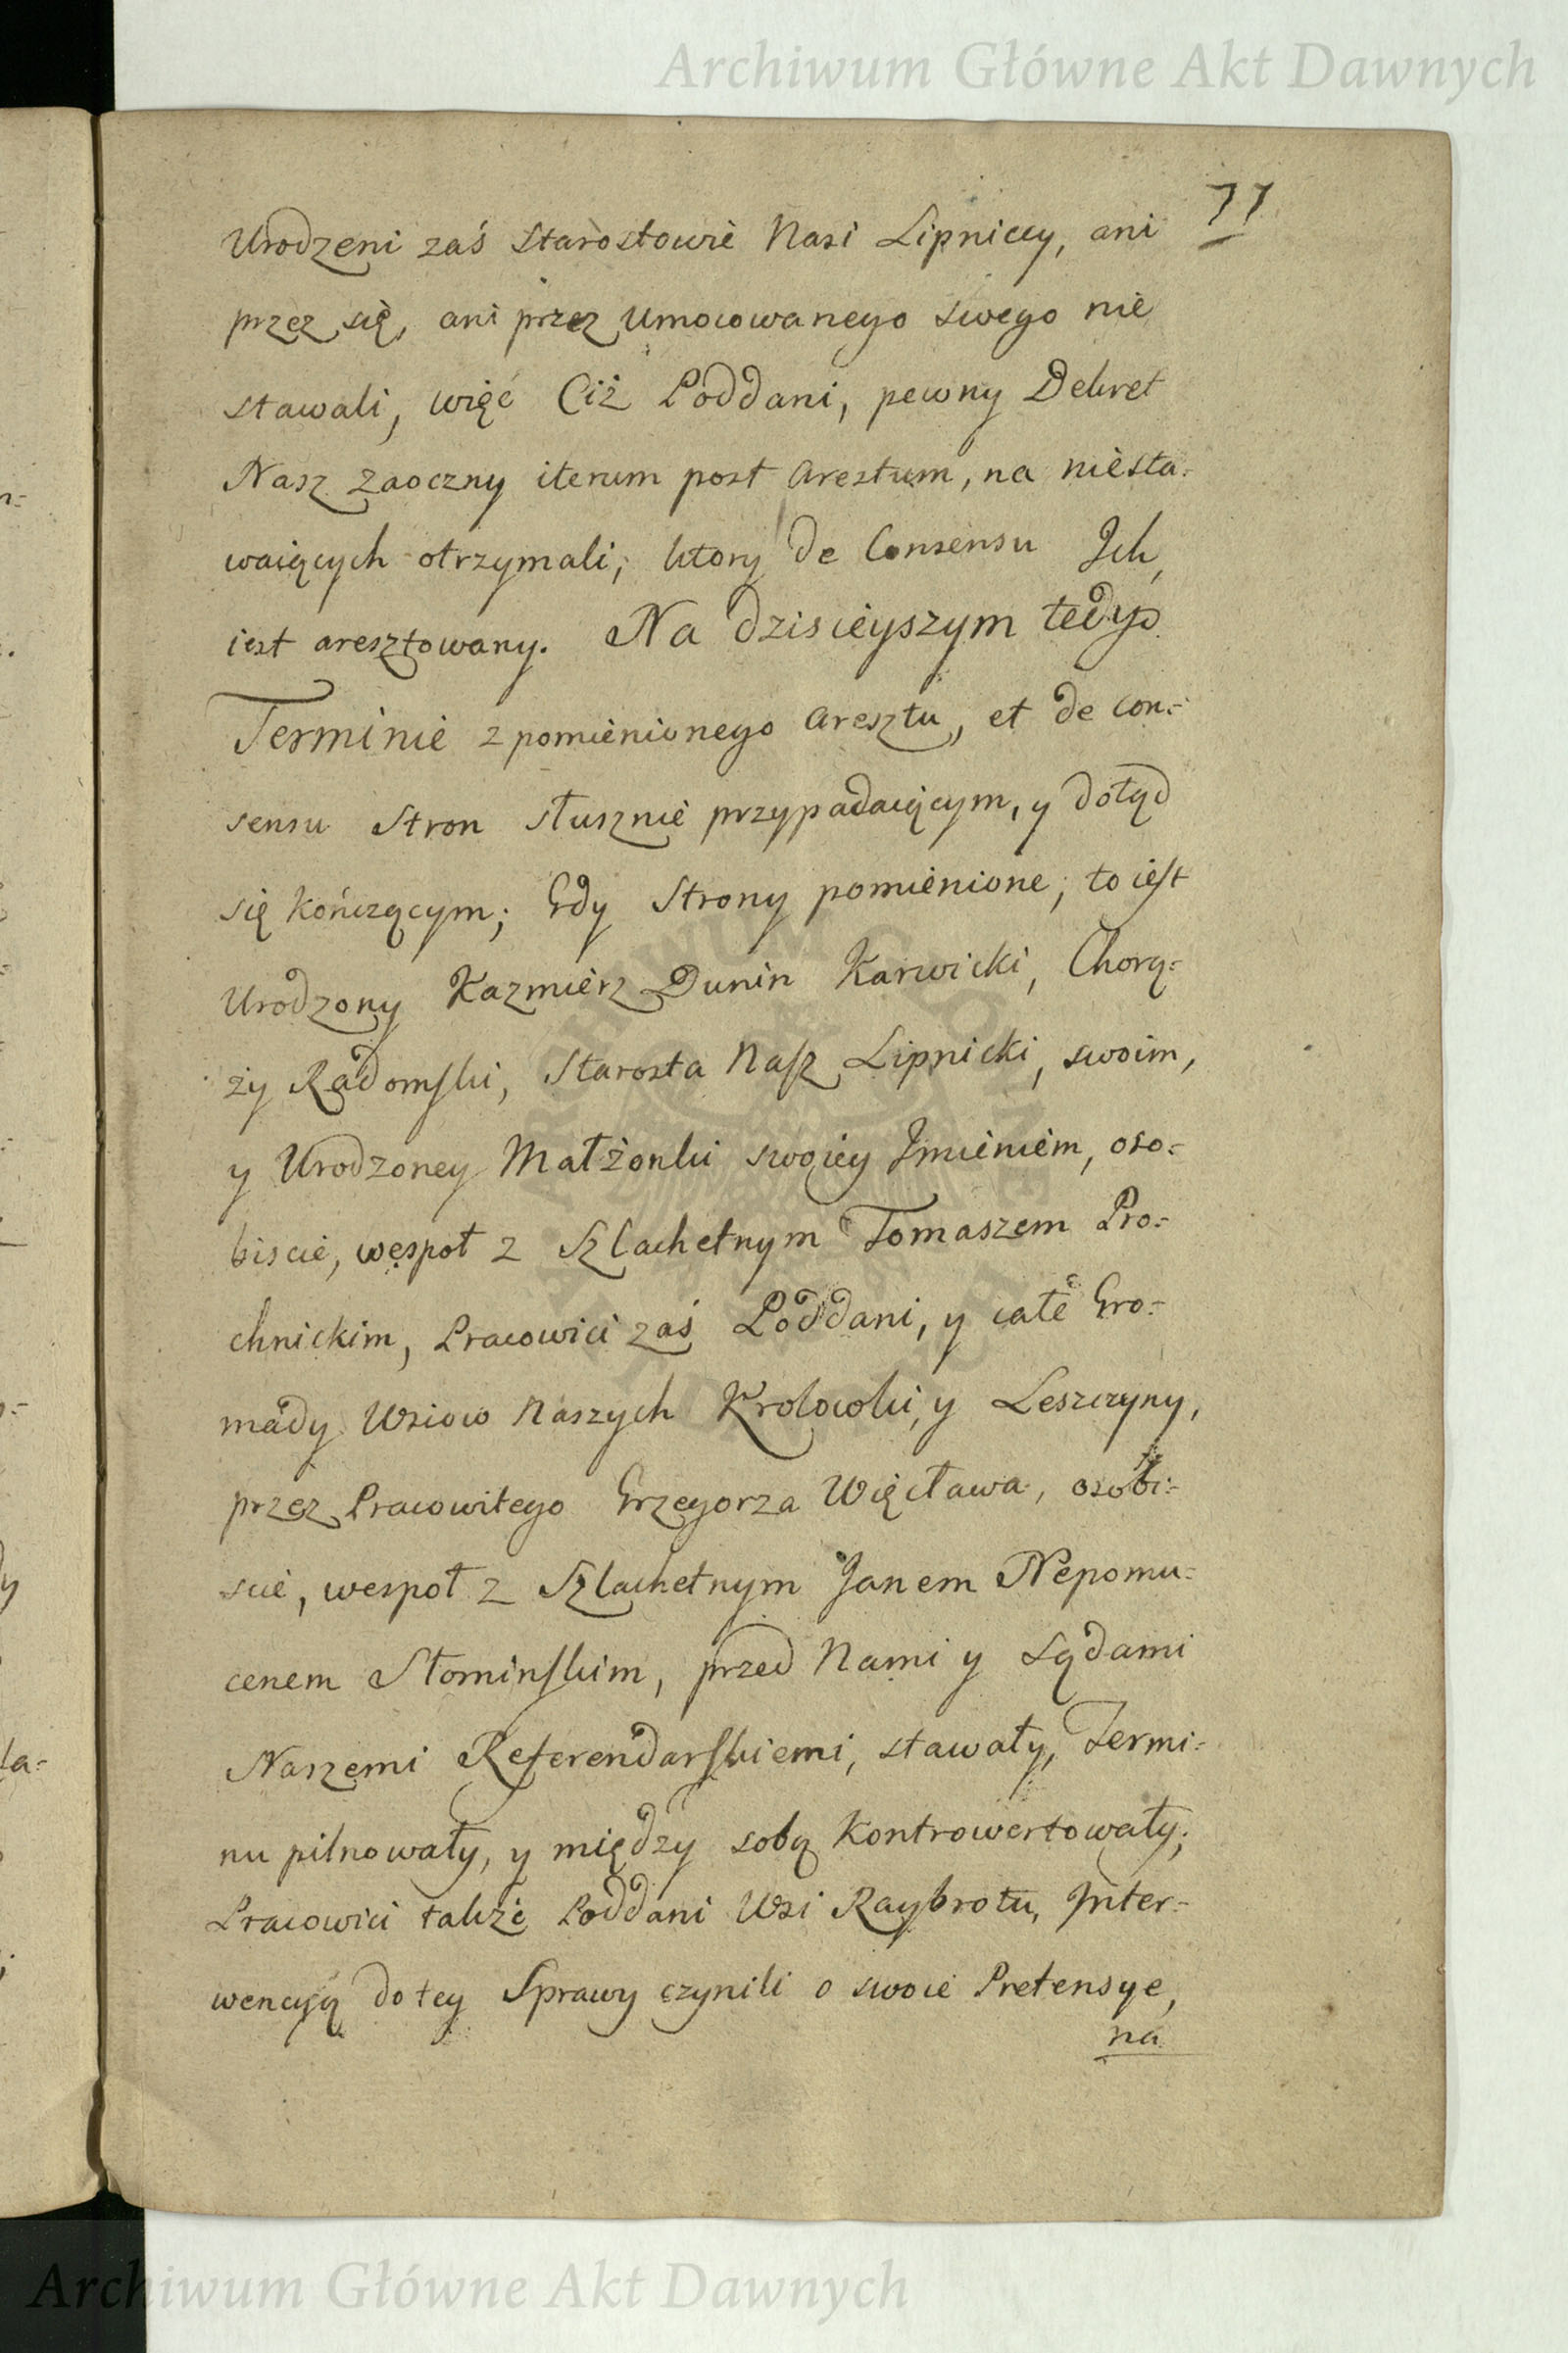 Archiwum Główne Akt Dawnych
77
Urodzeni zaś Starostowie Nasi Lipniccy, ani
przez się, ani przez Umocowanego swego nie
stawali, więc Ciż Poddani, pewny Dekret
Nasz zaoczny iterum post Arestum, na niesta=
waiących otrzymali; ktory de Consensu Ich,
iest aresztowany. Na dzisieyszym tedy
Terminie z pomienionego Aresztu, et de con=
sensu Stron słusznie przypadaiącym, y dotąd
się kończącym; Gdy Strony pomienione, to iest
Urodzony Kazmierz Dunin Karwicki, Chorą=
ży Radomski, Starosta Nasz Lipnicki, swoim,
y Urodzoney Małżonki swoiey Imieniem, oso=
biscie, wespoł z Szlachetnym Tomaszem Pro=
chnickim, Pracowici zaś Poddani, y całe Gro=
mady Wsiow Naszych Krolowki, y Leszczyny,
przez Pracowitego Grzegorza Więcława, osobi=
scie, wespoł z Szlachetnym Janem Nepomu=
cenem Słominskim, przed Nami y Sądami
Naszemi Referendarskiemi, stawały, Termi=
nu pilnowały, y między sobą Kontrowertowały;
Pracowici także Poddani Wsi Raybrotu, Inter=
wencyą do tey Sprawy czynili o swoie Pretensye,
na
Archiwum Główne Akt Dawnych